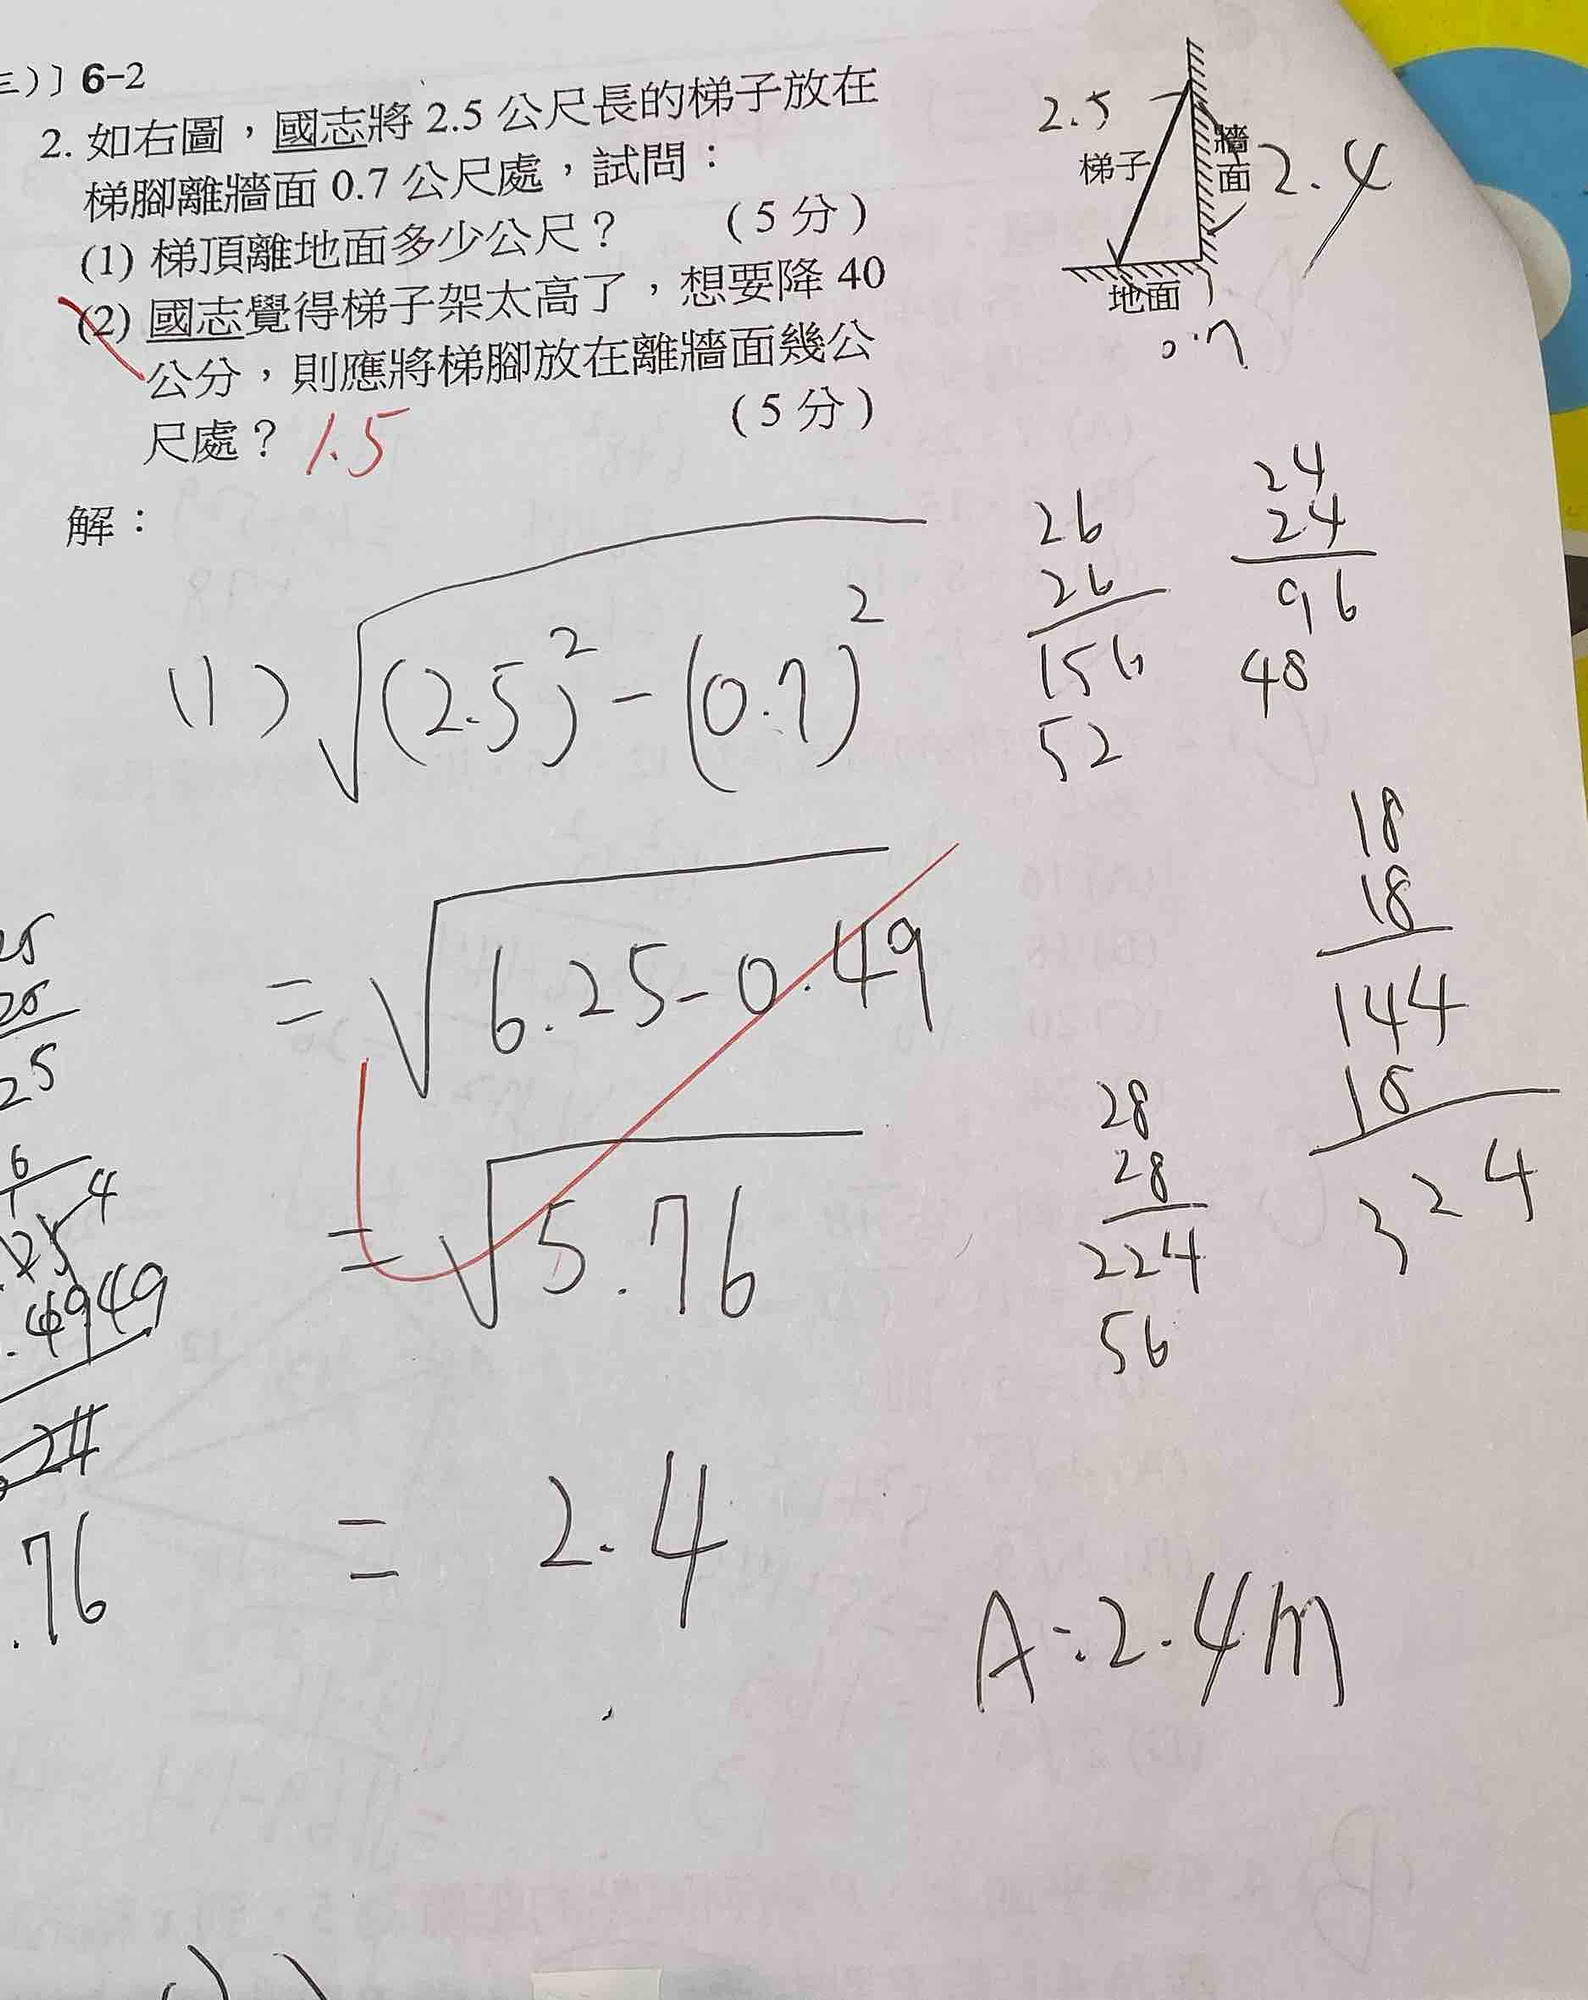 三)〕6-2
2. 如右圖，國志將 2.5 公尺長的梯子放在
梯腳離牆面 0.7 公尺處，試問：
(1) 梯頂離地面多少公尺？ (5 分)
(2) 國志覺得梯子架太高了，想要降 40
公分，則應將梯腳放在離牆面幾公
尺處？ 1.5 (5 分)
2.5
梯子
牆面
2.4
地面
0.7
解：
(1) √(2.5)² - (0.7)²
= √6.25-0.49
= √5.76
= 2.4
A:2.4m
26
26
156
52
24
24
96
48
18
18
144
18
324
28
28
224
56
25
25
25
4
.49 49
24
.76